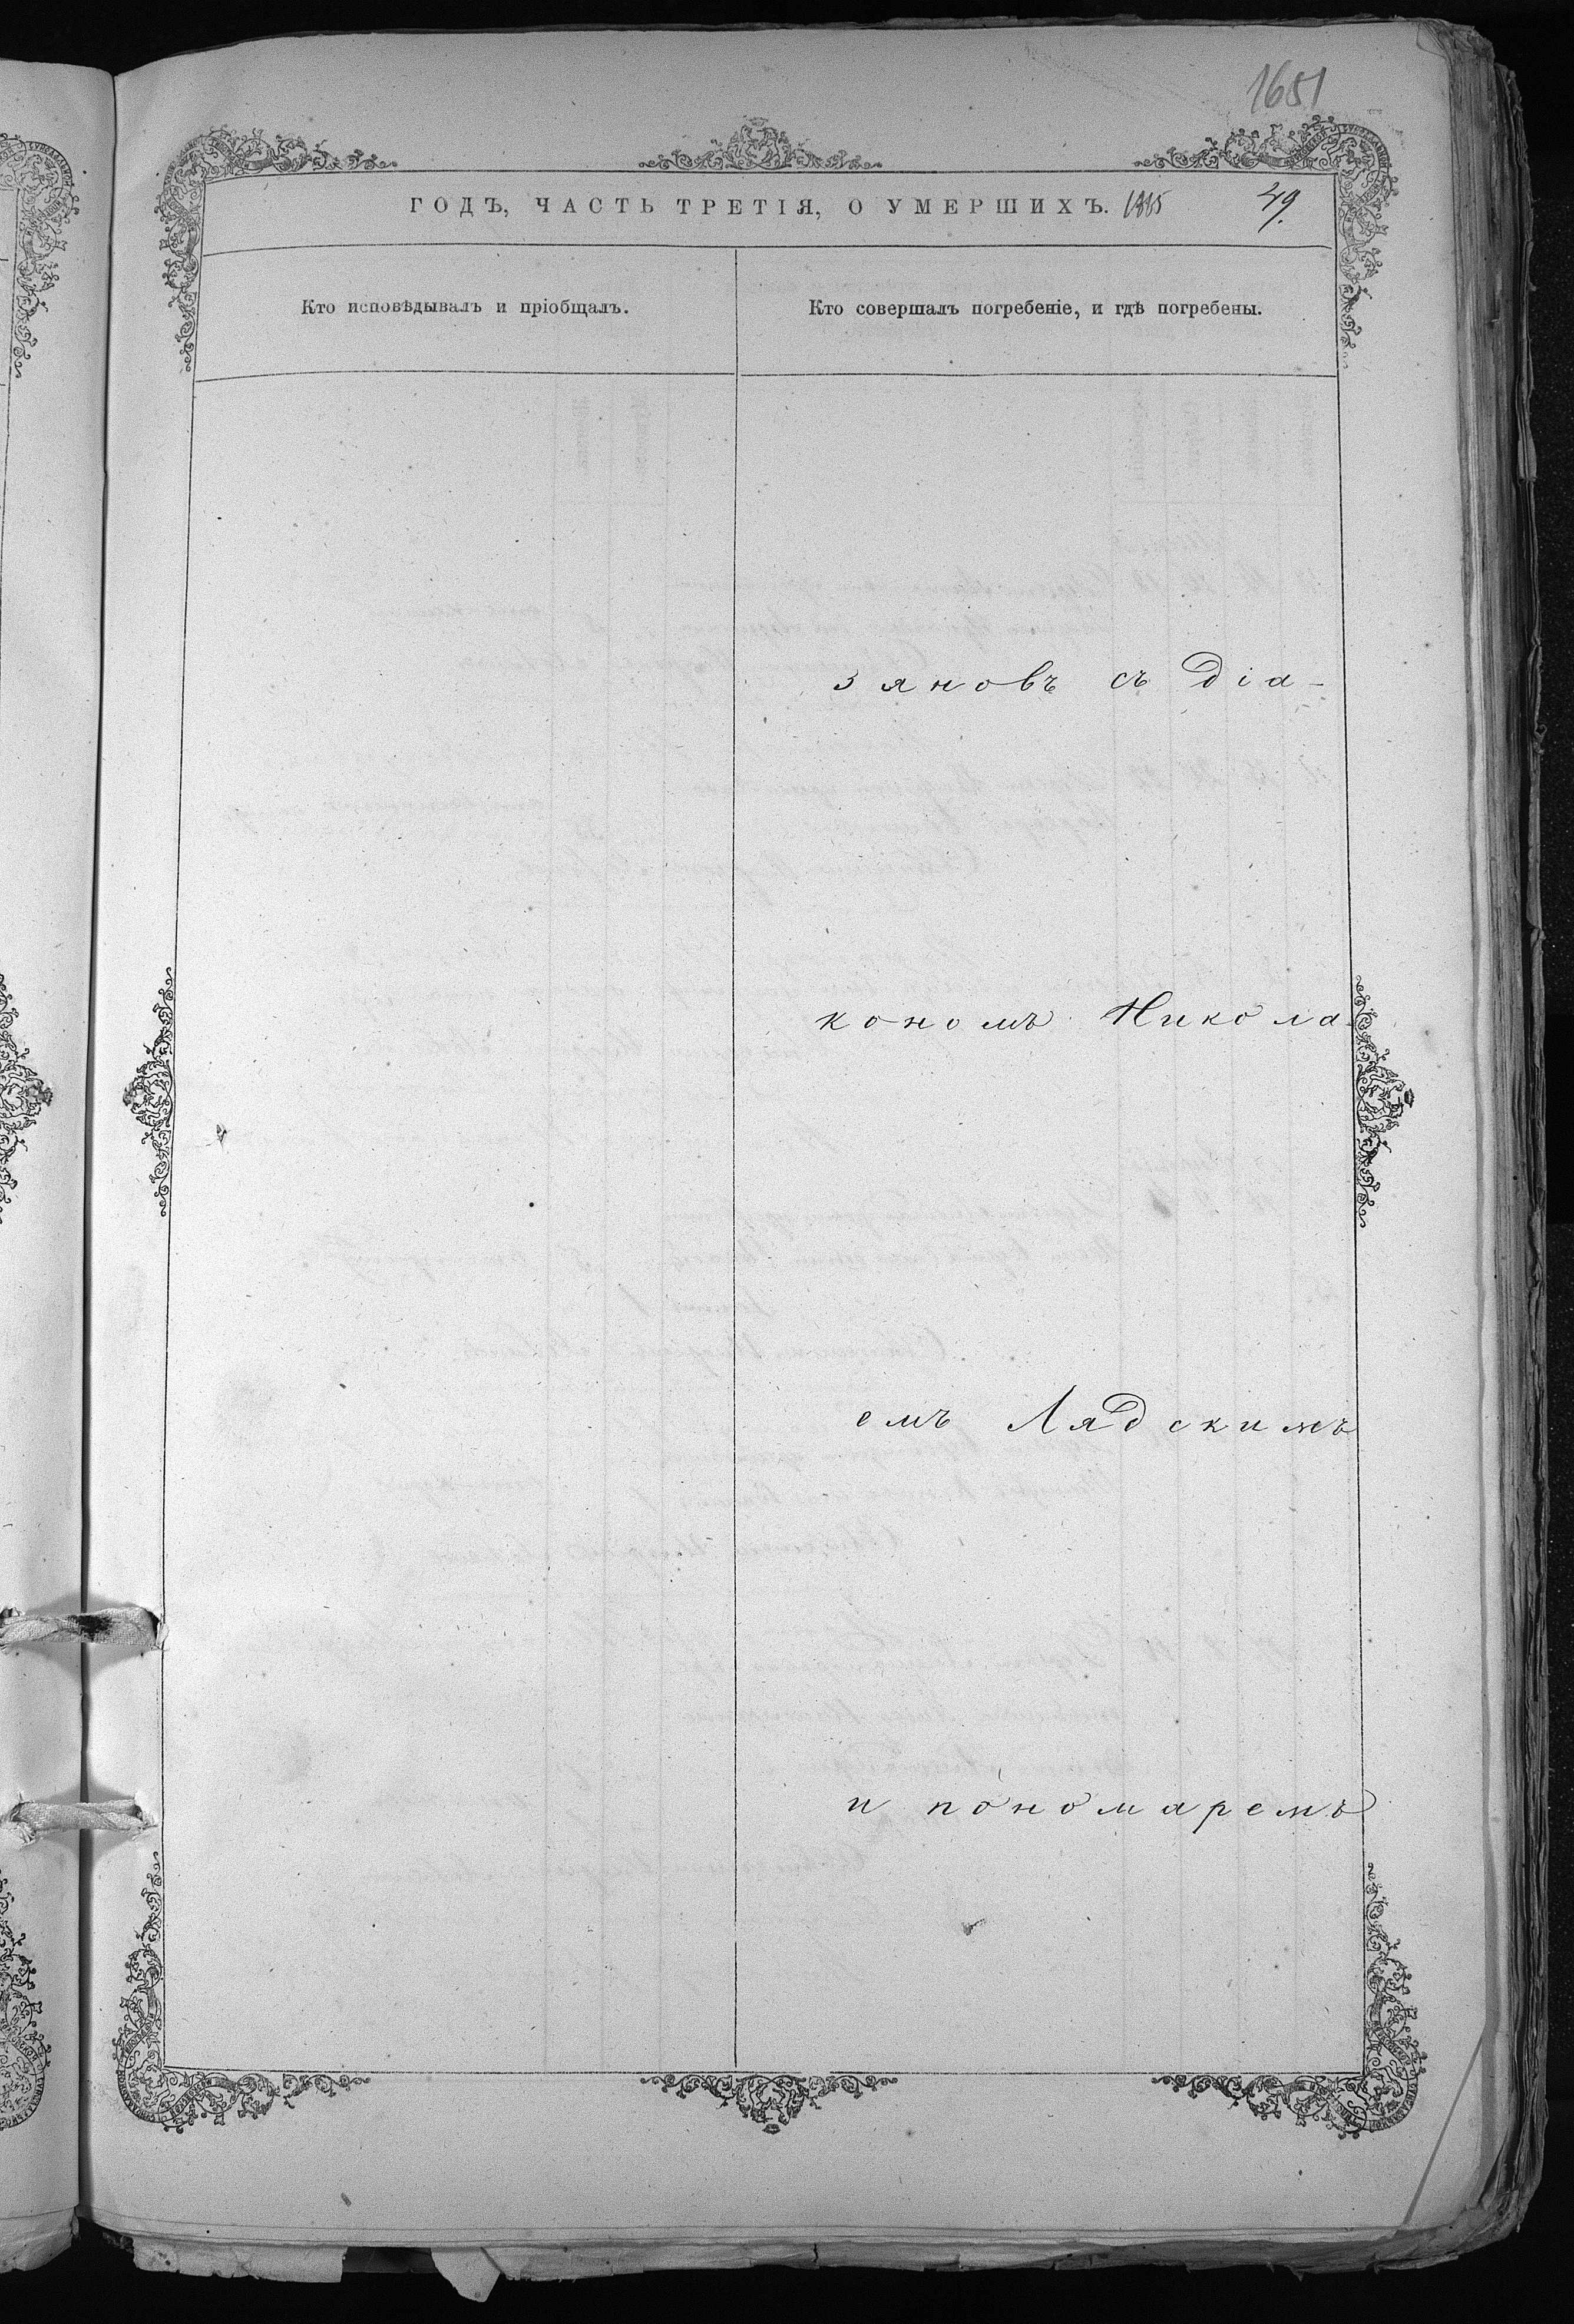 1651
ГОДЪ, ЧАСТЬ ТРЕТІЯ, О УМЕРШИХЪ. 1885
49.
Кто исповѣдывалъ и пріобщалъ.
Кто совершалъ погребеніе, и гдѣ погребены.
зяновъ съ діа-
кономъ Никола-
емъ Лядскимъ
и пономаремъ